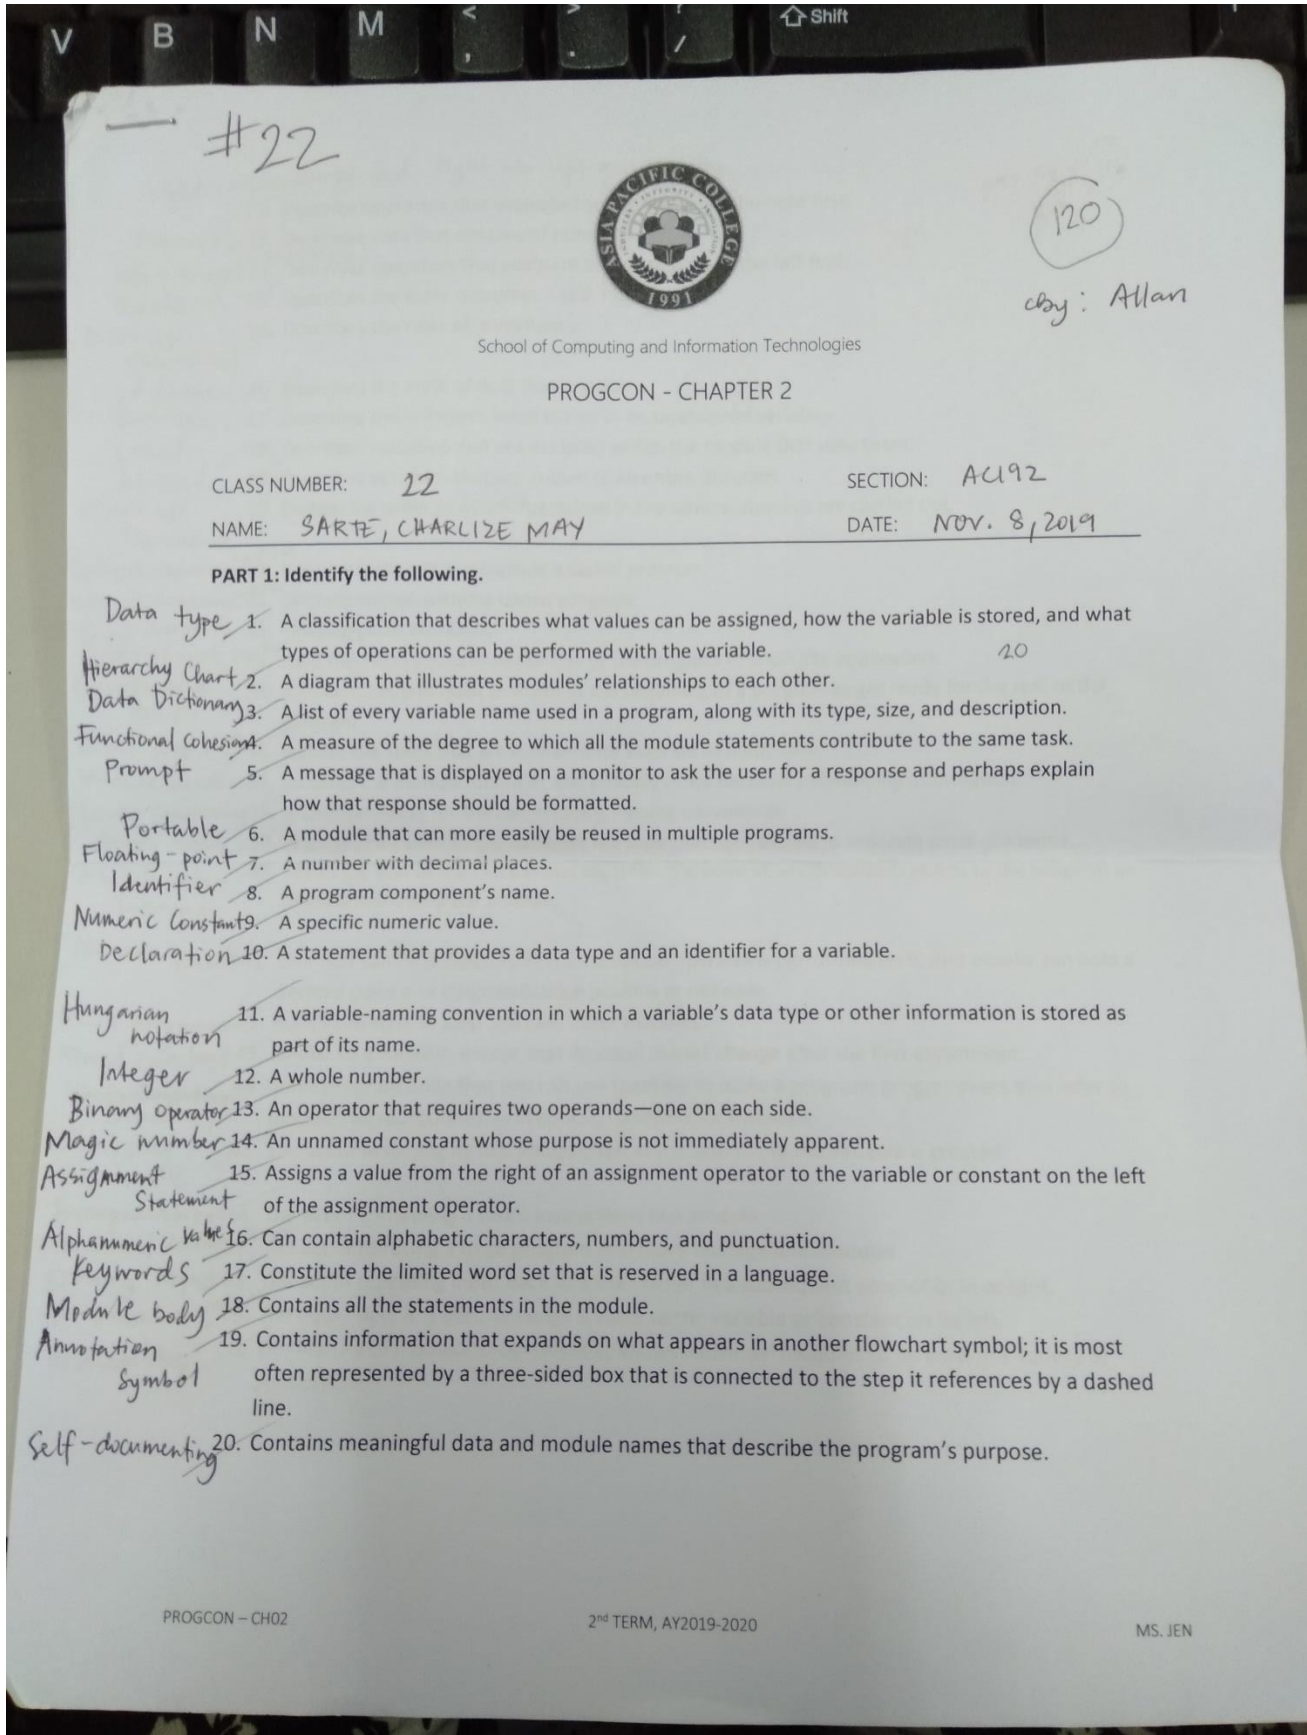 V B N M < , > . ? / Shift
#22
ASIA PACIFIC COLLEGE
1991
120
cby: Allan
School of Computing and Information Technologies
PROGCON - CHAPTER 2
CLASS NUMBER: 22 SECTION: AC192
NAME: SARTE, CHARLIZE MAY DATE: NOV. 8, 2019
PART 1: Identify the following.
Data type 1. A classification that describes what values can be assigned, how the variable is stored, and what
types of operations can be performed with the variable. 20
Hierarchy Chart 2. A diagram that illustrates modules' relationships to each other.
Data Dictionary 3. A list of every variable name used in a program, along with its type, size, and description.
Functional Cohesion 4. A measure of the degree to which all the module statements contribute to the same task.
Prompt 5. A message that is displayed on a monitor to ask the user for a response and perhaps explain
how that response should be formatted.
Portable 6. A module that can more easily be reused in multiple programs.
Floating-point 7. A number with decimal places.
Identifier 8. A program component's name.
Numeric Constant 9. A specific numeric value.
Declaration 10. A statement that provides a data type and an identifier for a variable.
Hungarian 11. A variable-naming convention in which a variable's data type or other information is stored as
notation part of its name.
Integer 12. A whole number.
Binary operator 13. An operator that requires two operands—one on each side.
Magic number 14. An unnamed constant whose purpose is not immediately apparent.
Assignment 15. Assigns a value from the right of an assignment operator to the variable or constant on the left
Statement of the assignment operator.
Alphanumeric values 16. Can contain alphabetic characters, numbers, and punctuation.
Keywords 17. Constitute the limited word set that is reserved in a language.
Module body 18. Contains all the statements in the module.
Annotation 19. Contains information that expands on what appears in another flowchart symbol; it is most
Symbol often represented by a three-sided box that is connected to the step it references by a dashed
line.
Self-documenting 20. Contains meaningful data and module names that describe the program's purpose.
PROGCON – CH02 2nd TERM, AY2019-2020 MS. JEN